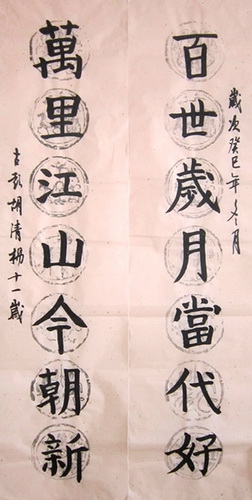 歲次癸巳年冬月
百世歲月當代好
萬里江山今朝新
古彭胡清楊十一歲